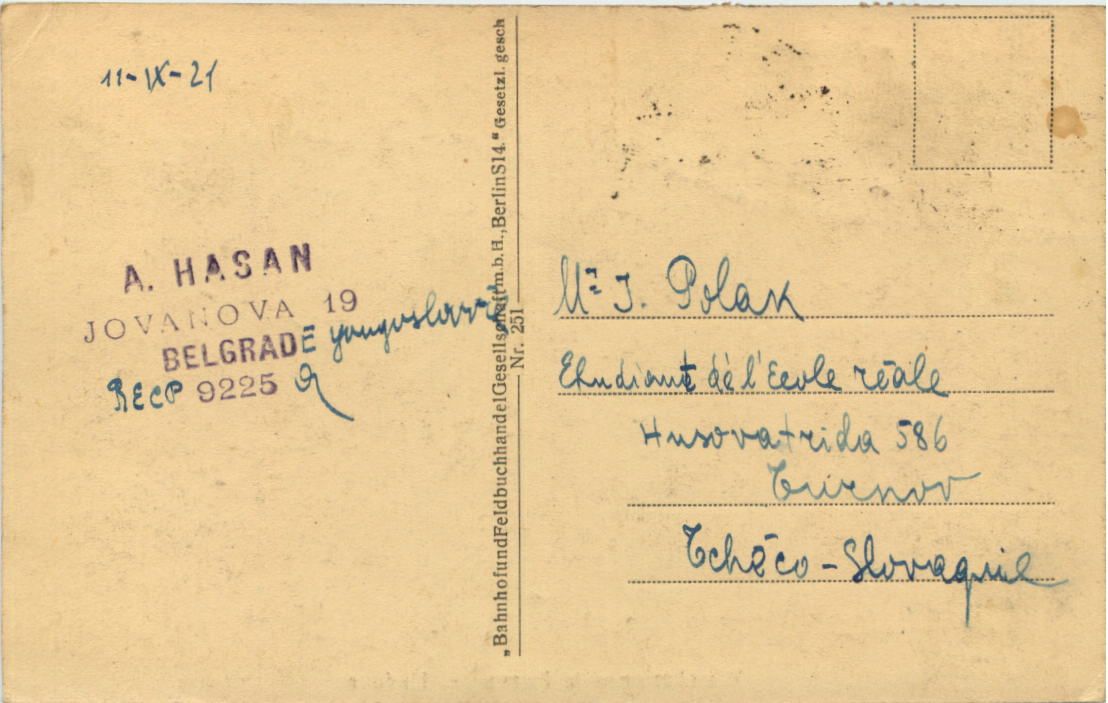 11-IX-21
A. HASAN
JOVANOVA 19
BELGRADE yougoslavie
RECP 9225
„Bahnhof und Feldbuchhandel Gesellschaft m.b.H., Berlin S14.“ Gesetzl. gesch
Nr. 251
Mr J. Polak
Ehudiant dè l'Ecole réale
Husovatrida 586
Turnov
Tchéco-Slovaquie